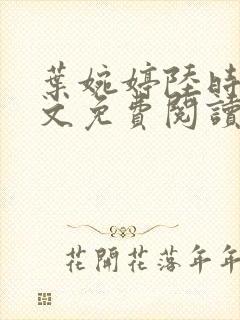 葉婉婷陸時
文免費閱讀
花開花落年年